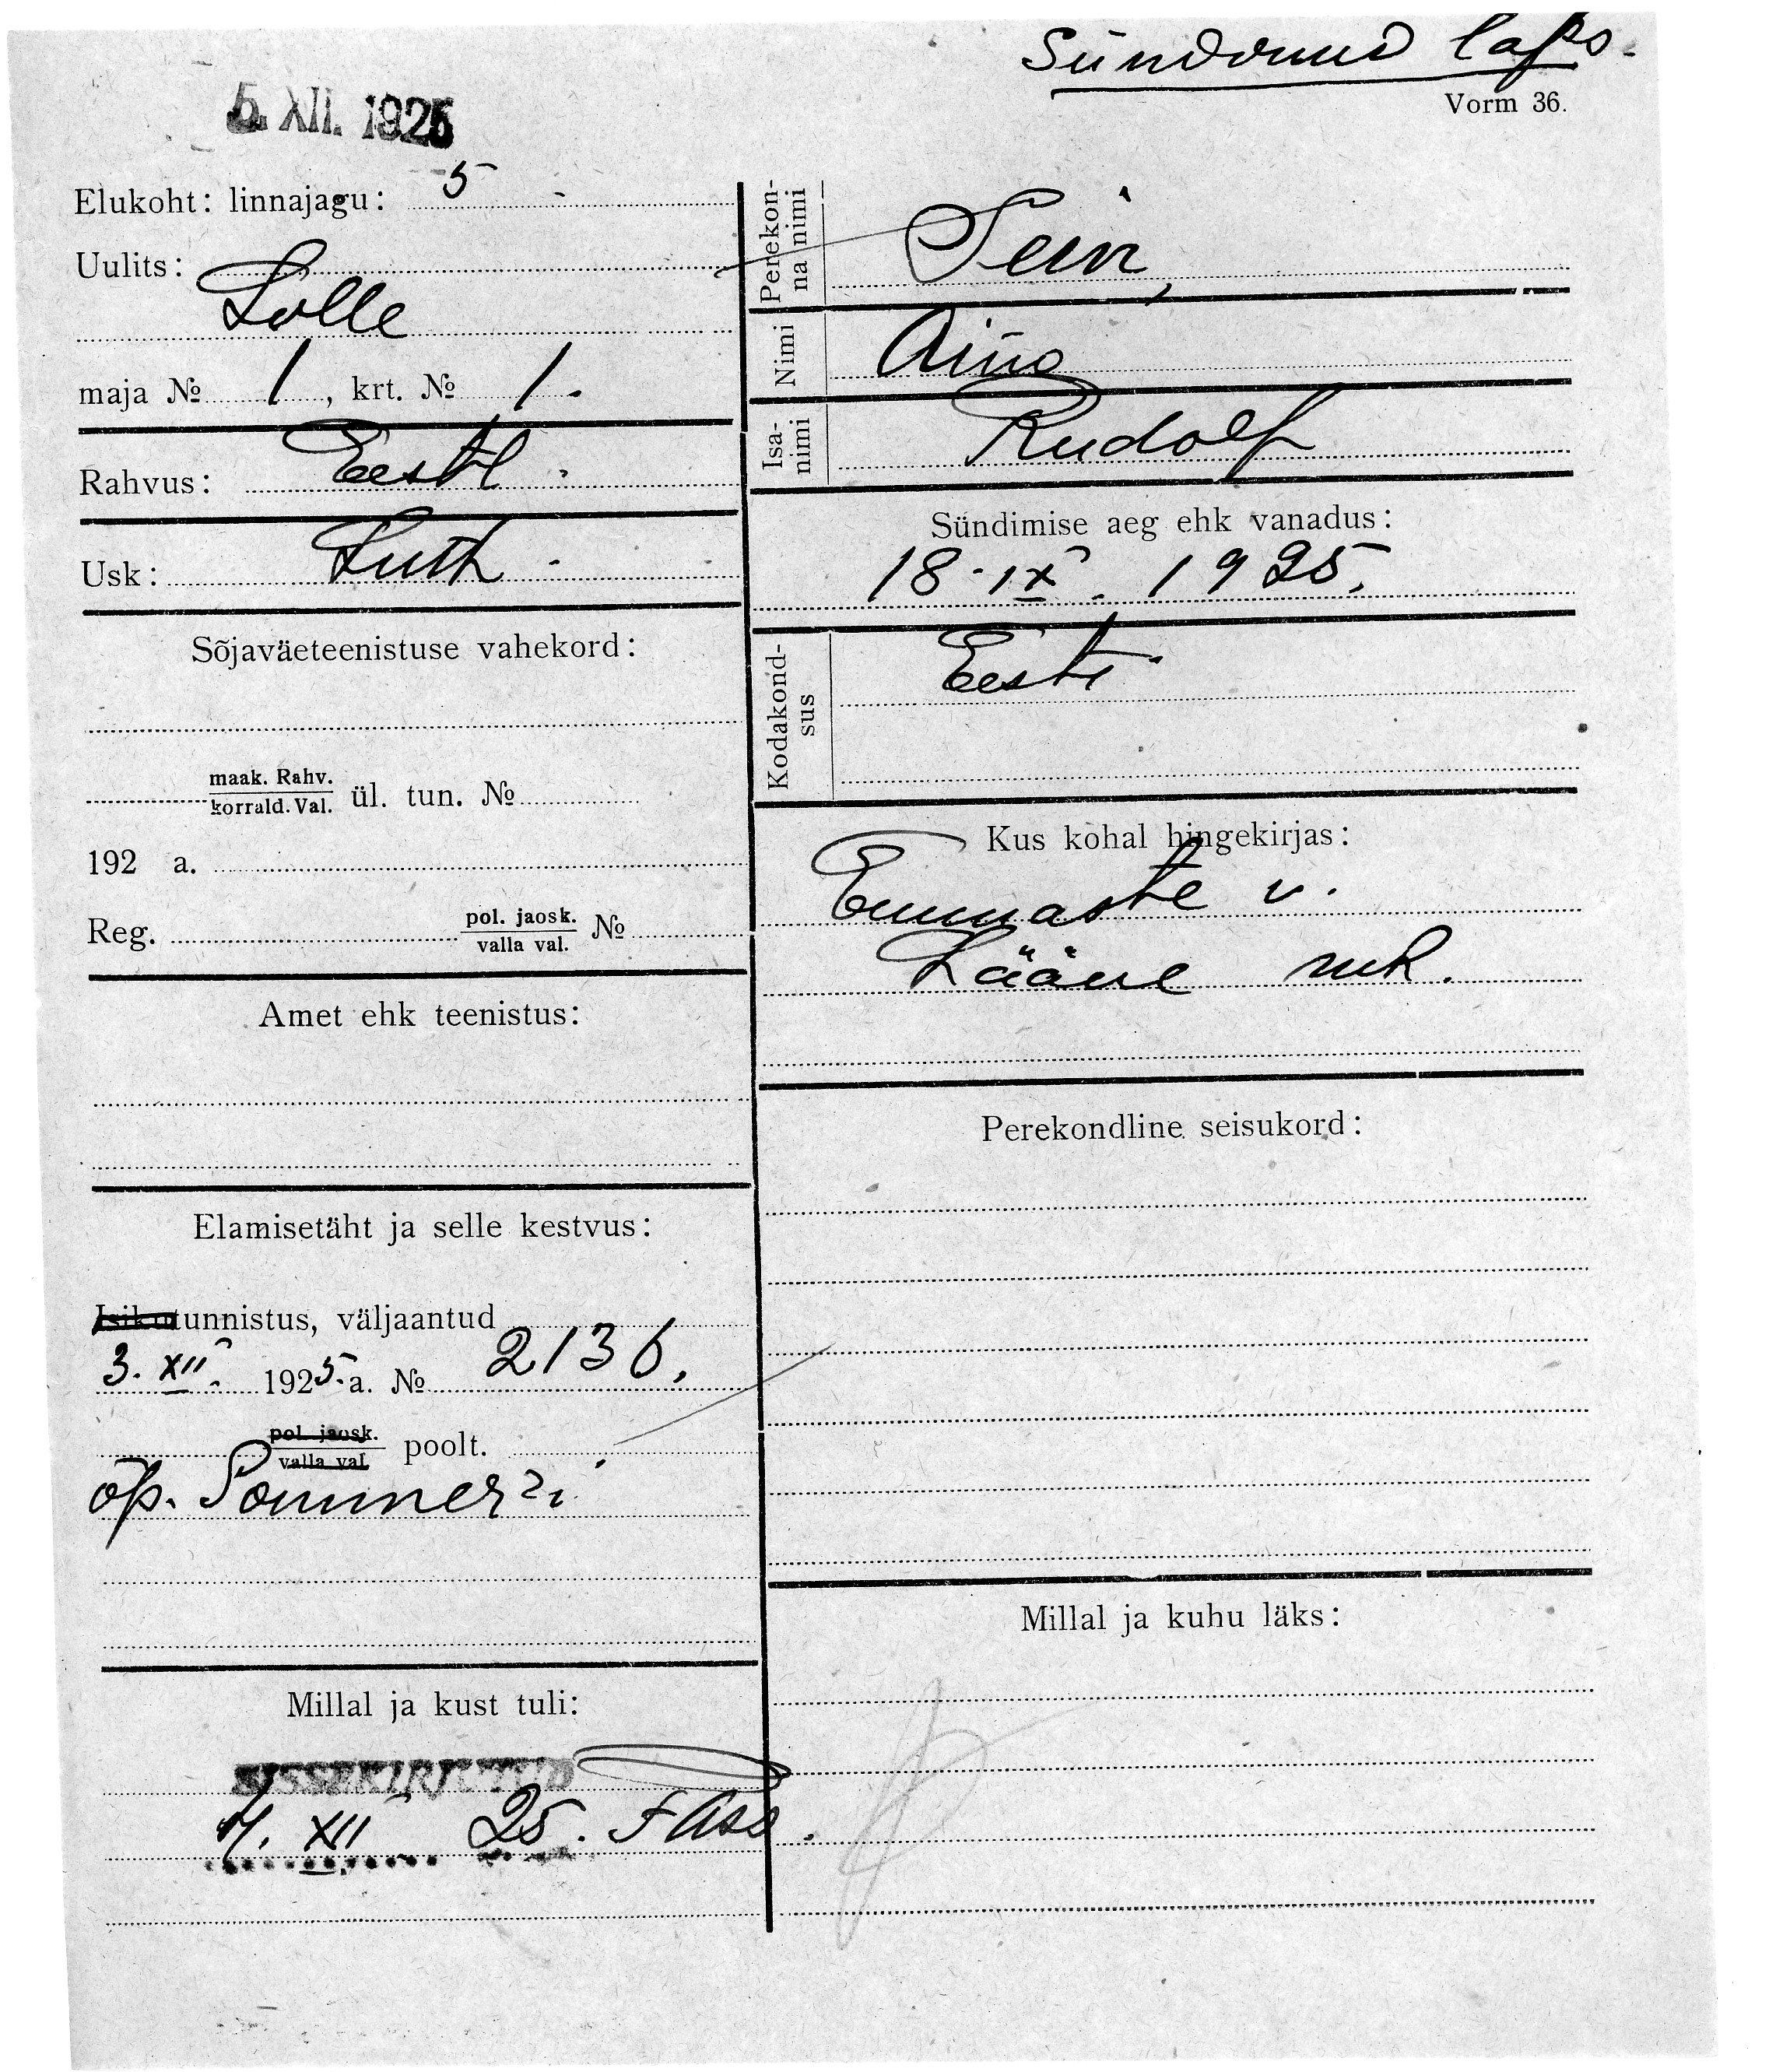 Sündinud laps.
Vorm 36.
5. XII. 1925
Elukoht: linnajagu: 5
Uulits:
Lolle
maja № 1, krt. № 1.
Rahvus: Eesti
Usk: Luth.
Sõjaväeteenistuse vahekord:
maak. Rahv.
korrald. Val. ül. tun. №
192 a.
Reg. pol. jaosk.
valla val. №
Amet ehk teenistus:
Elamisetäht ja selle kestvus:
Isikutunnistus, väljaantud
3. XII. 1925. a. № 2136.
pol. jaosk.
valla val. poolt.
õp. Sommeri
Millal ja kust tuli:
SISSEKIRJUTUD
4. XII 25.
Perekonna nimi
Tein,
Nimi
Aino
Isanimi
Rudolf
Sündimise aeg ehk vanadus:
18. IX. 1925.
Kodakondsus
Eesti
Kus kohal hingekirjas:
Emmaste v.
Lääne mk.
Perekondline seisukord:
Millal ja kuhu läks: